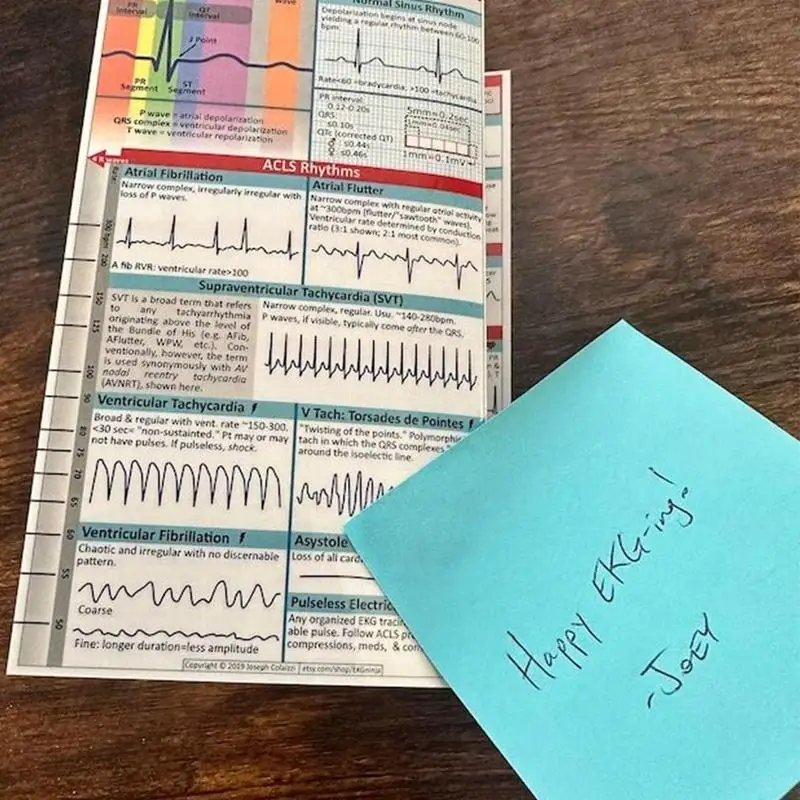 PR
Interval
QT
Interval
Wave
J Point
PR
Segment
ST
Segment
P wave = atrial depolarization
QRS complex = ventricular depolarization
T wave = ventricular repolarization
Normal Sinus Rhythm
Depolarization begins at sinus node
yielding a regular rhythm between 60-100
bpm.
Rate<60 =bradycardia; >100 =tachycardia
PR interval:
0.12-0.20s
QRS:
≤0.10s
QTc (corrected QT)
♂ ≤0.44s
♀ ≤0.46s
5mm=0.2sec
1mm=0.04sec
1mm=0.1mv
R waves
ACLS Rhythms
Atrial Fibrillation
Narrow complex, irregularly irregular with
loss of P waves.
A fib RVR: ventricular rate>100
Atrial Flutter
Narrow complex with regular atrial activity
at ~300bpm (flutter/"sawtooth" waves).
Ventricular rate determined by conduction
ratio (3:1 shown; 2:1 most common).
Supraventricular Tachycardia (SVT)
SVT is a broad term that refers
to any tachyarrhythmia
originating above the level of
the Bundle of His (e.g. AFib,
AFlutter, WPW, etc.). Con-
ventionally, however, the term
is used synonymously with AV
nodal reentry tachycardia
(AVNRT), shown here.
Narrow complex, regular. Usu. ~140-280bpm.
P waves, if visible, typically come after the QRS.
Ventricular Tachycardia
Broad & regular with vent. rate ~150-300.
<30 sec= "non-sustainted." Pt may or may
not have pulses. If pulseless, shock.
V Tach: Torsades de Pointes
"Twisting of the points." Polymorphic
tach in which the QRS complexes
around the isoelectric line.
Ventricular Fibrillation
Chaotic and irregular with no discernable
pattern.
Coarse
Fine: longer duration=less amplitude
Asystole
Loss of all card
Pulseless Electric
Any organized EKG tracin
able pulse. Follow ACLS pr
compressions, meds, & con
300 bpm
200
150
125
100
90
80
75
70
65
60
55
50
Copyright © 2019 Joseph Colaizzi | etsy.com/shop/EKGninja
Happy EKG-ing!
-JOEY